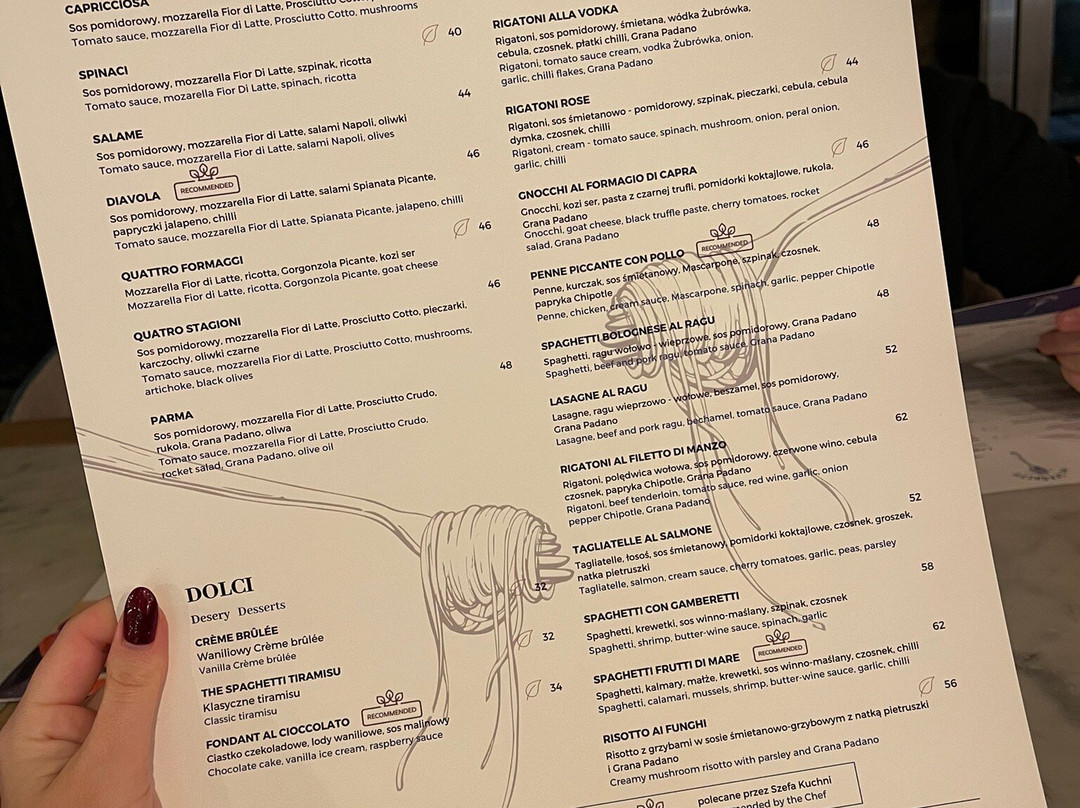 CAPRICCIOSA
Sos pomidorowy, mozzarella Fior di Latte, Prosciutto Cotto,
Tomato sauce, mozzarella Fior di Latte, Prosciutto Cotto, mushrooms
40
SPINACI
Sos pomidorowy, mozzarella Fior Di Latte, szpinak, ricotta
Tomato sauce, mozarella Fior Di Latte, spinach, ricotta
44
SALAME
Sos pomidorowy, mozzarella Fior di Latte, salami Napoli, oliwki
Tomato sauce, mozzarella Fior di Latte, salami Napoli, olives
46
DIAVOLA RECOMMENDED
Sos pomidorowy, mozzarella Fior di Latte, salami Spianata Picante,
papryczki jalapeno, chilli
Tomato sauce, mozzarella Fior di Latte, Spianata Picante, jalapeno, chilli
46
QUATTRO FORMAGGI
Mozzarella Fior di Latte, ricotta, Gorgonzola Picante, kozi ser
Mozzarella Fior di Latte, ricotta, Gorgonzola Picante, goat cheese
46
QUATRO STAGIONI
Sos pomidorowy, mozzarella Fior di Latte, Prosciutto Cotto, pieczarki,
karczochy, oliwki czarne
Tomato sauce, mozzarella Fior di Latte, Prosciutto Cotto, mushrooms,
artichoke, black olives
48
PARMA
Sos pomidorowy, mozzarella Fior di Latte, Prosciutto Crudo,
rukola, Grana Padano, oliwa
Tomato sauce, mozzarella Fior di Latte, Prosciutto Crudo,
rocket salad, Grana Padano, olive oil
DOLCI
Desery Desserts
32
CRÈME BRÛLÉE
Waniliowy Crème brûlée
Vanilla Crème brûlée
32
THE SPAGHETTI TIRAMISU
Klasyczne tiramisu
Classic tiramisu
34
FONDANT AL CIOCCOLATO RECOMMENDED
Ciastko czekoladowe, lody waniliowe, sos malinowy
Chocolate cake, vanilla ice cream, raspberry sauce
RIGATONI ALLA VODKA
Rigatoni, sos pomidorowy, śmietana, wódka Żubrówka,
cebula, czosnek, płatki chilli, Grana Padano
Rigatoni, tomato sauce cream, vodka Żubrówka, onion,
garlic, chilli flakes, Grana Padano
44
RIGATONI ROSE
Rigatoni, sos śmietanowo - pomidorowy, szpinak, pieczarki, cebula, cebula
dymka, czosnek, chilli
Rigatoni, cream - tomato sauce, spinach, mushroom, onion, peral onion,
garlic, chilli
46
GNOCCHI AL FORMAGIO DI CAPRA
Gnocchi, kozi ser, pasta z czarnej trufli, pomidorki koktajlowe, rukola,
Grana Padano
Gnocchi, goat cheese, black truffle paste, cherry tomatoes, rocket
salad, Grana Padano
48
PENNE PICCANTE CON POLLO RECOMMENDED
Penne, kurczak, sos śmietanowy, Mascarpone, szpinak, czosnek,
papryka Chipotle
Penne, chicken, cream sauce, Mascarpone, spinach, garlic, pepper Chipotle
48
SPAGHETTI BOLOGNESE AL RAGU
Spaghetti, ragu wołowo - wieprzowe, sos pomidorowy, Grana Padano
Spaghetti, beef and pork ragu, tomato sauce, Grana Padano
52
LASAGNE AL RAGU
Lasagne, ragu wieprzowo - wołowe, beszamel, sos pomidorowy,
Grana Padano
Lasagne, beef and pork ragu, bechamel, tomato sauce, Grana Padano
62
RIGATONI AL FILETTO DI MANZO
Rigatoni, polędwica wołowa, sos pomidorowy, czerwone wino, cebula
czosnek, papryka Chipotle, Grana Padano
Rigatoni, beef tenderloin, tomato sauce, red wine, garlic, onion
pepper Chipotle, Grana Padano
52
TAGLIATELLE AL SALMONE
Tagliatelle, łosoś, sos śmietanowy, pomidorki koktajlowe, czosnek, groszek,
natka pietruszki
Tagliatelle, salmon, cream sauce, cherry tomatoes, garlic, peas, parsley
58
SPAGHETTI CON GAMBERETTI
Spaghetti, krewetki, sos winno-maślany, szpinak, czosnek
Spaghetti, shrimp, butter-wine sauce, spinach, garlic
62
SPAGHETTI FRUTTI DI MARE RECOMMENDED
Spaghetti, kalmary, małże, krewetki, sos winno-maślany, czosnek, chilli
Spaghetti, calamari, mussels, shrimp, butter-wine sauce, garlic, chilli
56
RISOTTO AI FUNGHI
Risotto z grzybami w sosie śmietanowo-grzybowym z natką pietruszki
i Grana Padano
Creamy mushroom risotto with parsley and Grana Padano
polecane przez Szefa Kuchni
by the Chef